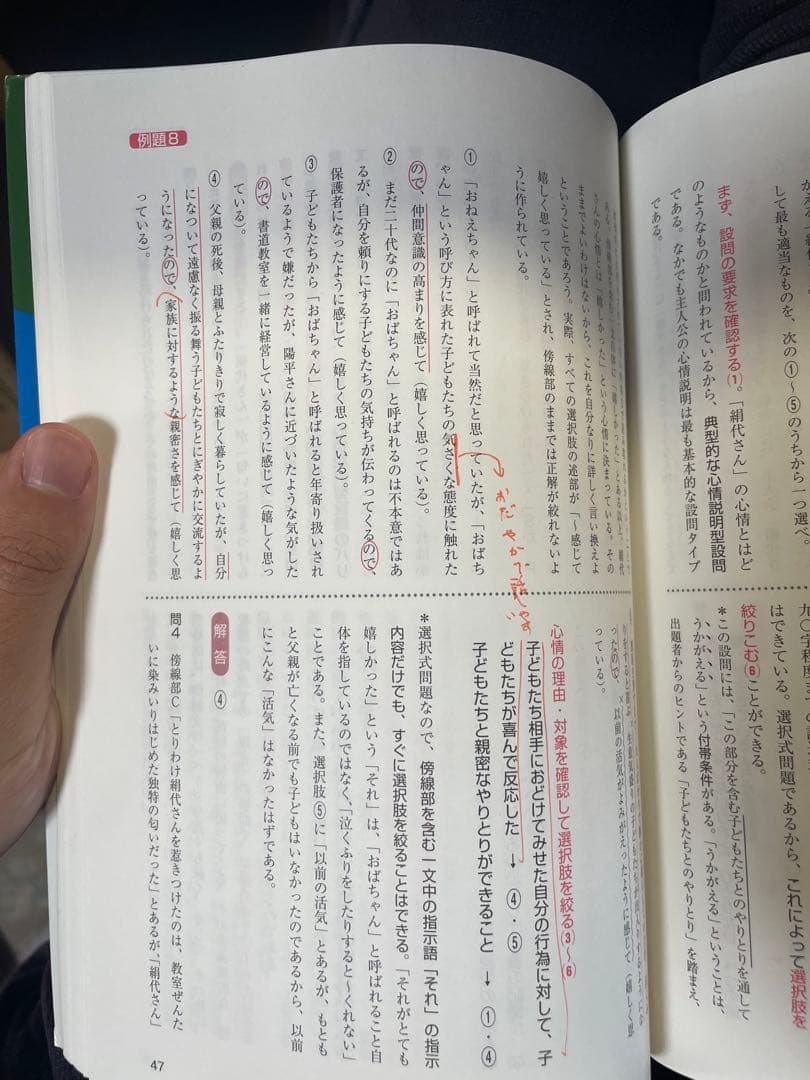 かえる
して最も適当なものを、次の①〜
⑤のうちから一つ選べ。
まず、設問の要求を確認する⑴。「絹代さん」の心情とはど
のようなものかと問われているから、典型的な心情説明型設問
である。なかでも主人公の心情説明は最も基本的な設問タイプ
である。
九〇字程度
はできている。選択式問題であるから、これによって選択肢を
絞りこむ⑹ことができる。
*この設問には、「この部分を含む子どもたちとのやりとりを通して
うかがえる」という付帯条件がある。「うかがえる」ということは、
出題者からのヒントである「子どもたちとのやりとり」を踏まえ、
さんの心情とは「嬉しかった」という心情に決まっている。その
ままでよいわけはないから、これを自分なりに詳しく言い換えよ
ということであろう。実際、すべての選択肢の述部が「〜感じて
嬉しく思っている」とされ、傍線部のままでは正解が絞れないよ
うに作られている。
①「おねえちゃん」と呼ばれて当然だと思っていたが、「おばち
ゃん」という呼び方に表れた子どもたちの気さくな態度に触れた
ので、仲間意識の高まりを感じて（嬉しく思っている）。
② まだ二十代なのに「おばちゃん」と呼ばれるのは不本意ではあ
るが、自分を頼りにする子どもたちの気持ちが伝わってくるので、
保護者になったように感じて（嬉しく思っている）。
③ 子どもたちから「おばちゃん」と呼ばれると年寄り扱いされ
ているようで嫌だったが、陽平さんに近づいたような気がした
ので、書道教室を一緒に経営しているように感じて（嬉しく思っ
ている）。
④ 父親の死後、母親とふたりきりで寂しく暮らしていたが、自分
になついて遠慮なく振る舞う子どもたちとにぎやかに交流するよ
うになったので、家族に対するような親密さを感じて（嬉しく思
っている）。
例題8
ったので、以前の活気がよみがえったように感じて（嬉しく思
っている）。
心情の理由・対象を確認して選択肢を絞る⑶〜⑹
子どもたち相手におどけてみせた自分の行為に対して、子
どもたちが喜んで反応した → ④・⑤
子どもたちと親密なやりとりができること → ①・④
*選択式問題なので、傍線部を含む一文中の指示語「それ」の指示
内容だけでも、すぐに選択肢を絞ることはできる。「それがとても
嬉しかった」という「それ」は、「おばちゃん」と呼ばれること自
体を指しているのではなく、「泣くふりをしたりすると〜くれない」
ことである。また、選択肢⑤に「以前の活気」とあるが、もとも
と父親が亡くなる前でも子どもはいなかったのであるから、以前
にこんな「活気」はなかったはずである。
解答 ④
問4 傍線部C「とりわけ絹代さんを惹きつけたのは、教室ぜんた
いに染みいりはじめた独特の匂いだった」とあるが、「絹代さん」
47